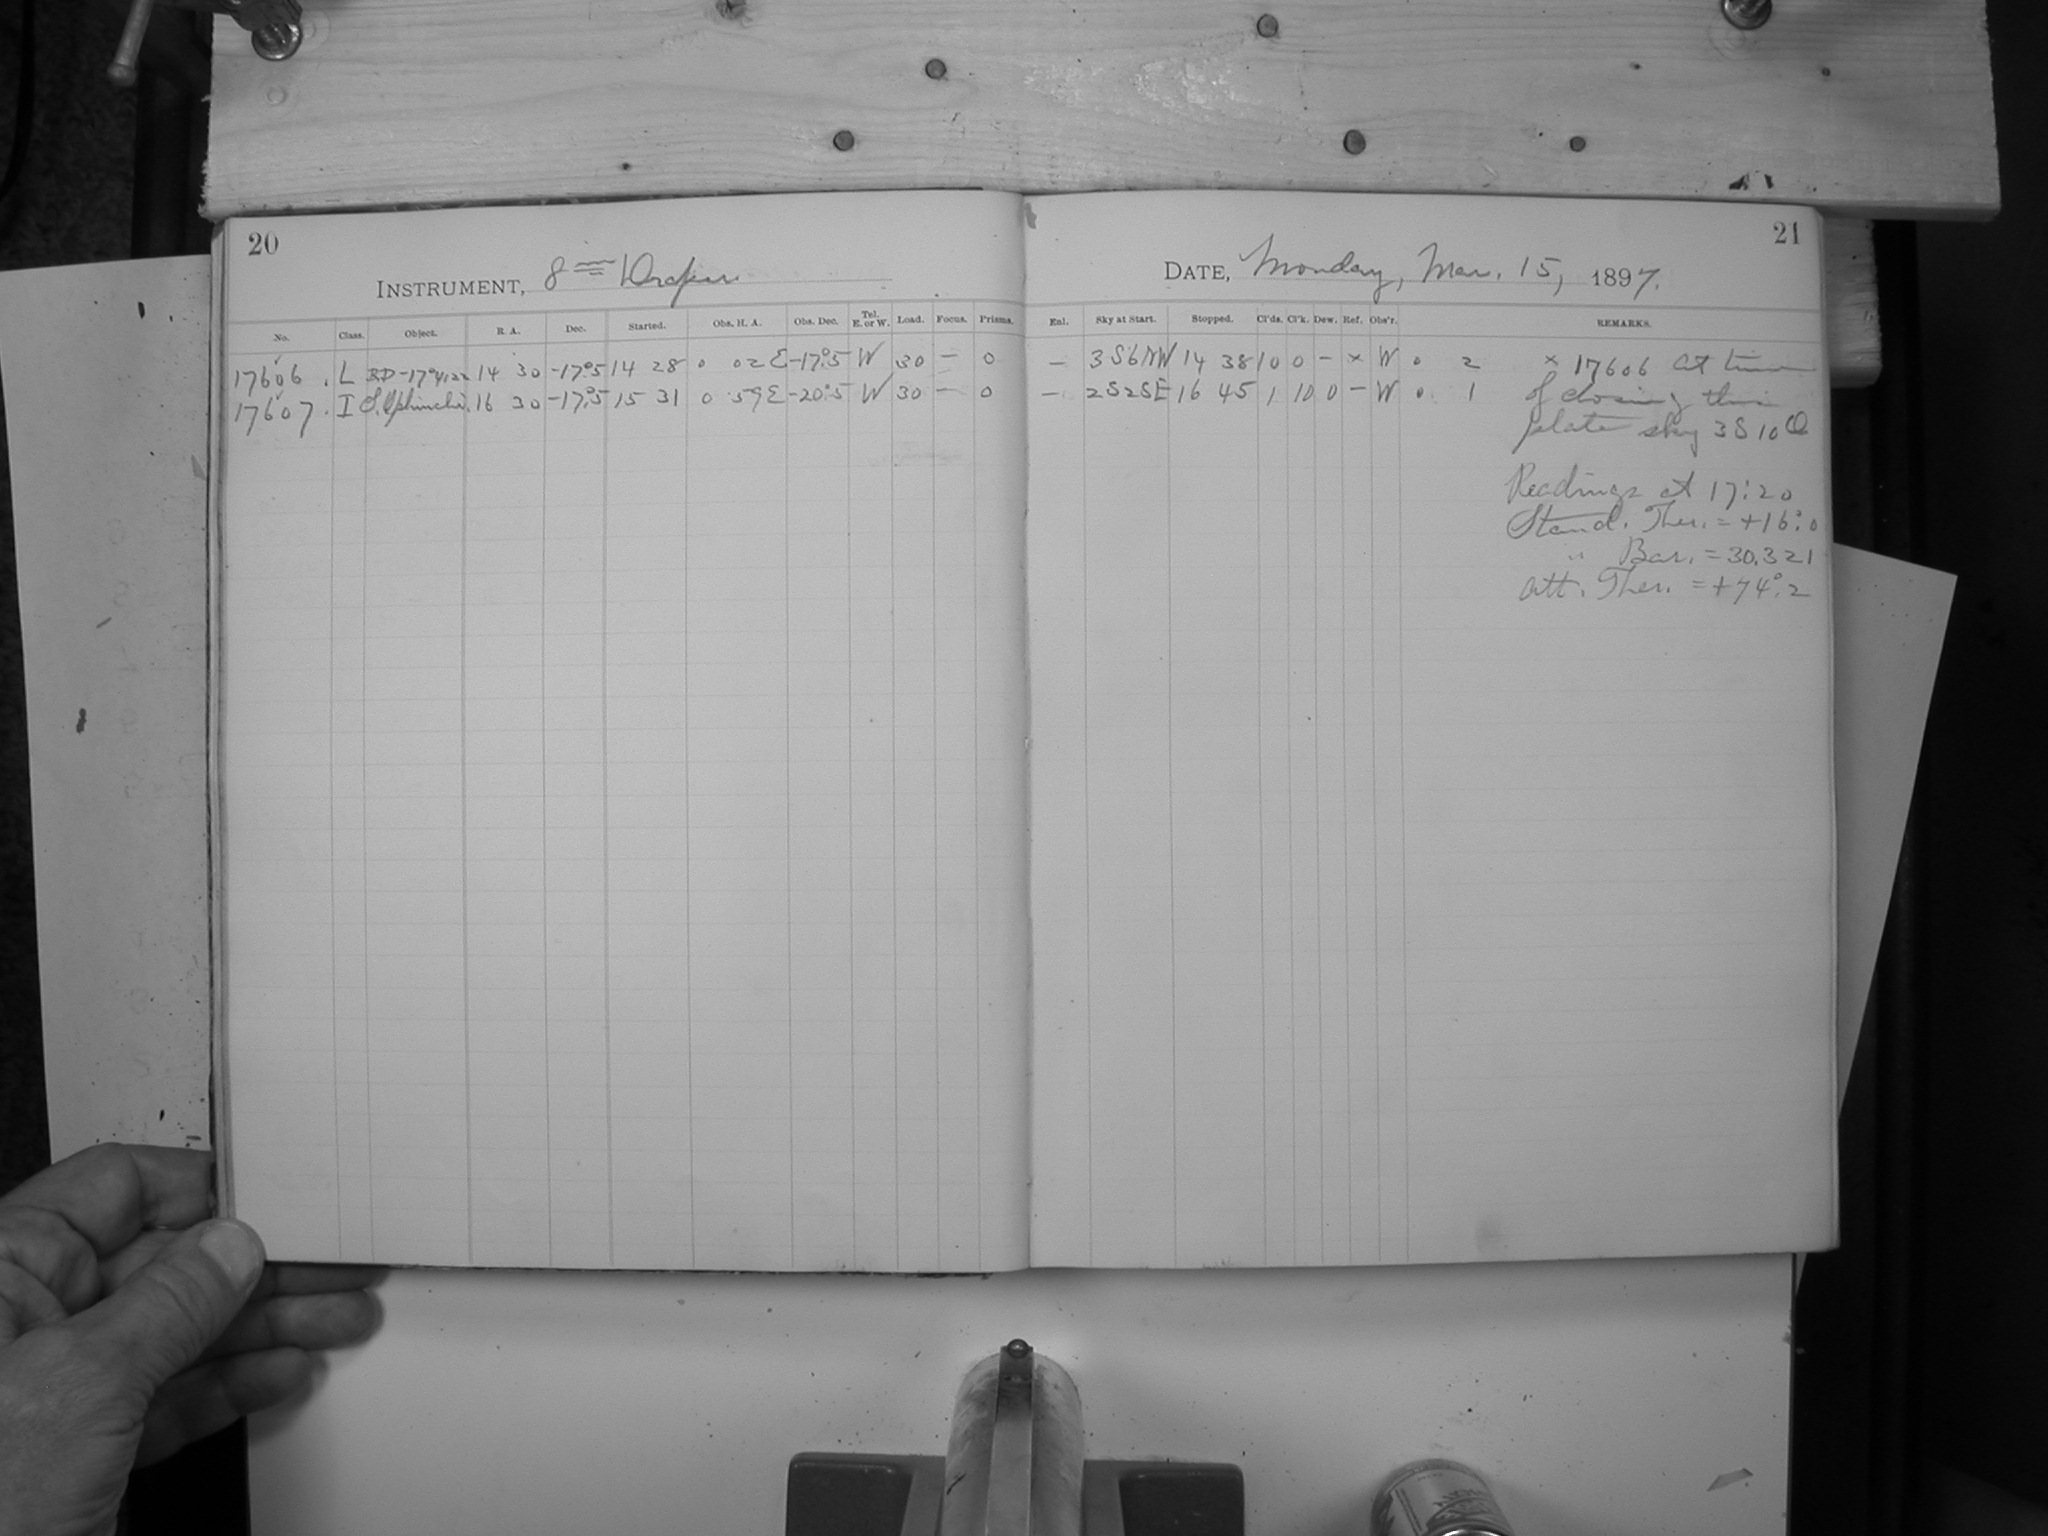 20
INSTRUMENT, 8 in Draper
No. Class. Object. R. A. Dec. Started. Obs. H. A. Obs. Dec. Tel. E. or W. Load. Focus. Prisms.
17606 . L BD -17°4122 14 30 -17°.5 14 28 0 02 E -17°.5 W 30 — 0
17607 . I S. Ophiuchi 16 30 -17°.5 15 31 0 59 E -20°.5 W 30 — 0
21
DATE, Monday, Mar. 15, 1897.
Enl. Sky at Start. Stopped. Cl'ds. Cl'k. Dew. Ref. Obs'r. REMARKS.
— 3S6NW 14 38 10 0 — x W 0 2 x 17606 At time
— 2S2SE 16 45 1 10 0 — W 0. 1 of closing this
plate sky 3S10
Readings at 17:20
Stand. Ther. = +16°.0
" Bar. = 30.321
Att. Ther. = +74°.2